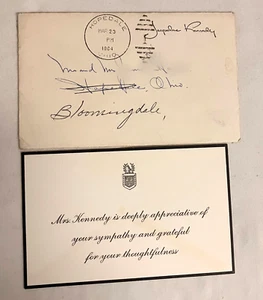 HOPEDALE
PM
1964
OHIO
Jacqueline Kennedy
Hopedale, Ohio
Bloomingdale,
Mrs. Kennedy is deeply appreciative of
your sympathy and grateful
for your thoughtfulness